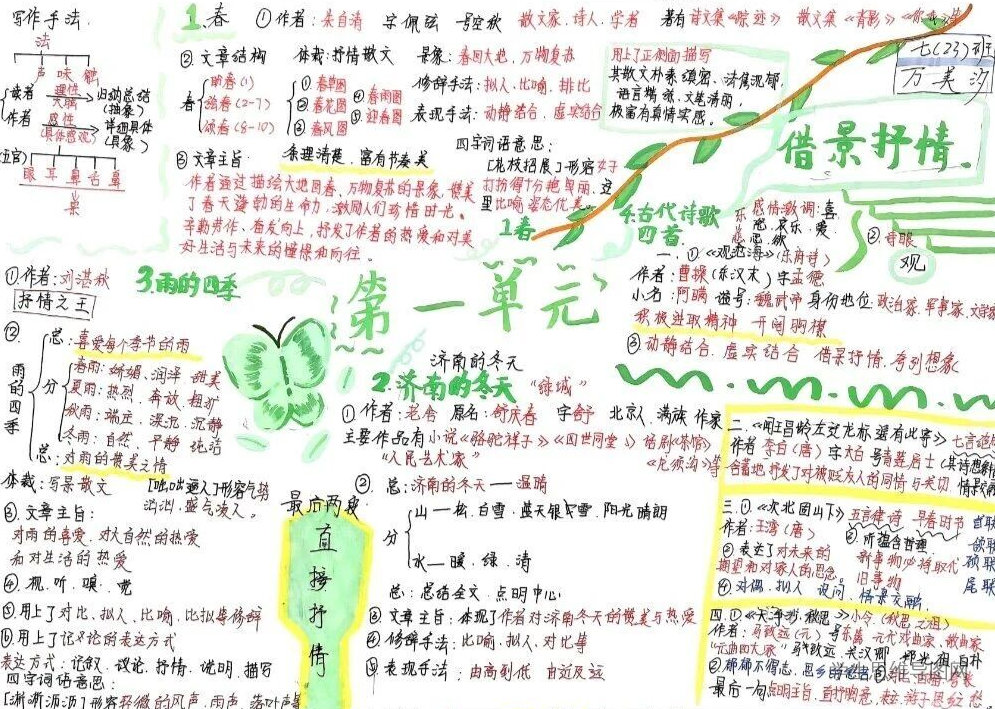 写作手法
法
声 味 触
读者
理性
大脑
归纳总结
(抽象)
作者
感性
(具体感观)
详细具体
(具象)
五官
眼 耳 鼻 舌
景
1.春
①作者:朱自清 字佩弦 号空秋 散文家、诗人、学者 著有诗文集《踪迹》 散文集《背影》
②文章结构 体裁:抒情散文 景象:春回大地,万物复苏
春
盼春(1)
绘春(2-7)
颂春(8-10)
①春草图
②春花图
③春风图
④春雨图
⑤迎春图
修辞手法:拟人、比喻、排比
表现手法:动静结合、虚实结合
用上了正侧面描写
其散文朴素缜密、清隽沉郁、
语言精炼、文笔清丽、
极富有真情实感。
③文章主旨: 条理清楚,富有节奏美
作者通过描绘大地回春、万物复苏的景象,赞美
了春天蓬勃的生命力,激励人们珍惜时光。
辛勤劳作、奋发向上,抒发了作者的热爱和对美
好生活与未来的憧憬和向往。
四字词语意思:
[花枝招展]形容女子
打扮得十分艳丽,这
里比喻姿态优美。
七(23)班
借景抒情.
1春
4.古代诗歌
四首
感情激调:喜
②.诗眼
观
一、①《观沧海》(乐府诗)
作者:曹操(东汉末)字孟德
小名:阿瞒 谥号:魏武帝 身份地位:政治家、军事家、文学家
积极进取精神 开阔胸襟
③动静结合、虚实结合 借景抒情、奇列想象
3.雨的四季
①作者:刘湛秋
抒情之王
②.
雨的四季
总:喜爱每个季节的雨
分
春雨:娇媚、润泽、甜美
夏雨:热烈、奔放、粗犷
秋雨:端庄、深沉、沉静
冬雨:自然、平静、纯洁
总:对雨的赞美之情
体裁:写景散文
[咄咄逼人]形容气势
汹汹,盛气凌人。
③.文章主旨:
对雨的喜爱、对大自然的热爱
和对生活的热爱
④.视、听、嗅、觉
⑤用上了对比、拟人、比喻、比拟等修辞
⑥用上了记叙论的表达方式
表达方式:记叙、议论、抒情、说明、描写
四字词语意思:
[淅淅沥沥]形容轻微的风声、雨声、落叶声等
第一单元
济南的冬天
2.济南的冬天 “绿域”
①作者:老舍 原名:舒庆春 字舒予 北京人 满族 作家
主要作品有小说《骆驼祥子》《四世同堂》话剧《茶馆》
“人民艺术家” 《龙须沟》等
②.
总:济南的冬天——温晴
分
山—松、白雪、蓝天银雪、阳光晴朗
水—暖、绿、清
总:总结全文,点明中心
③文章主旨:体现了作者对济南冬天的赞美与热爱
④修辞手法:比喻、拟人、对比等
⑤表现手法:由高到低 由近及远
最后两段
直接抒情
二、《闻王昌龄左迁龙标遥有此寄》七言绝句
作者 李白(唐)字太白 号青莲居士
含蓄地抒发了对被贬友人的同情与关切
三.①《次北固山下》五言律诗 早春时节
作者:王湾(唐)
②.所蕴含哲理
③表达了对未来的
期望和对家人的思念
新事物必将取代
旧事物
④对偶、拟人、设问、情景交融.
首联
颔联
颈联
尾联
四.①《天净沙·秋思》小令(秋思之祖)
作者:马致远(元)号东篱 元代戏曲家、散曲家
“元曲四大家” 马致远、关汉卿、郑光祖、白朴
最后一句点明主旨,直抒胸意